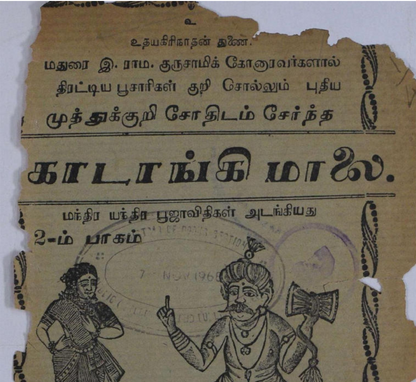 உ
உதயகிரிநாதன் துணை.
மதுரை இ. ராம. குருசாமிக் கோனாரவர்களால்
திரட்டிய பூசாரிகள் குறி சொல்லும் புதிய
முத்துக்குறி சோதிடம் சேர்ந்த
காடாங்கி மாலை.
மந்திர யந்திர பூஜாவிதிகள் அடங்கியது
2-ம் பாகம்
NOV 196